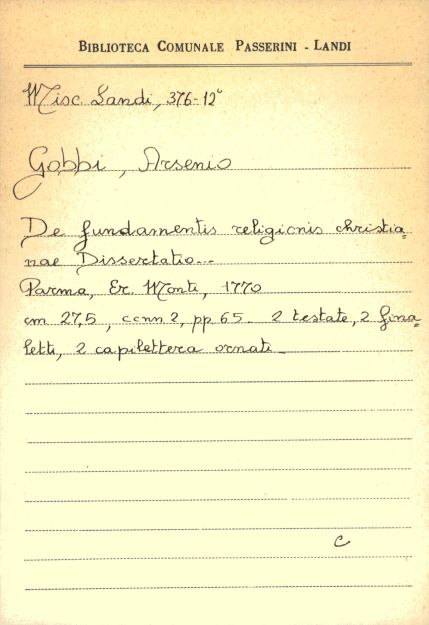 BIBLIOTECA COMUNALE PASSERINI - LANDI
Misc. Landi, 376-12°
Gobbi, Arsenio
De fundamentis religionis christia=
nae Dissertatio...
Parma, Er. Monti, 1770
cm 27,5, ccnn 2, pp 65. 2 testate, 2 fina=
letti, 2 capilettera ornati_
c